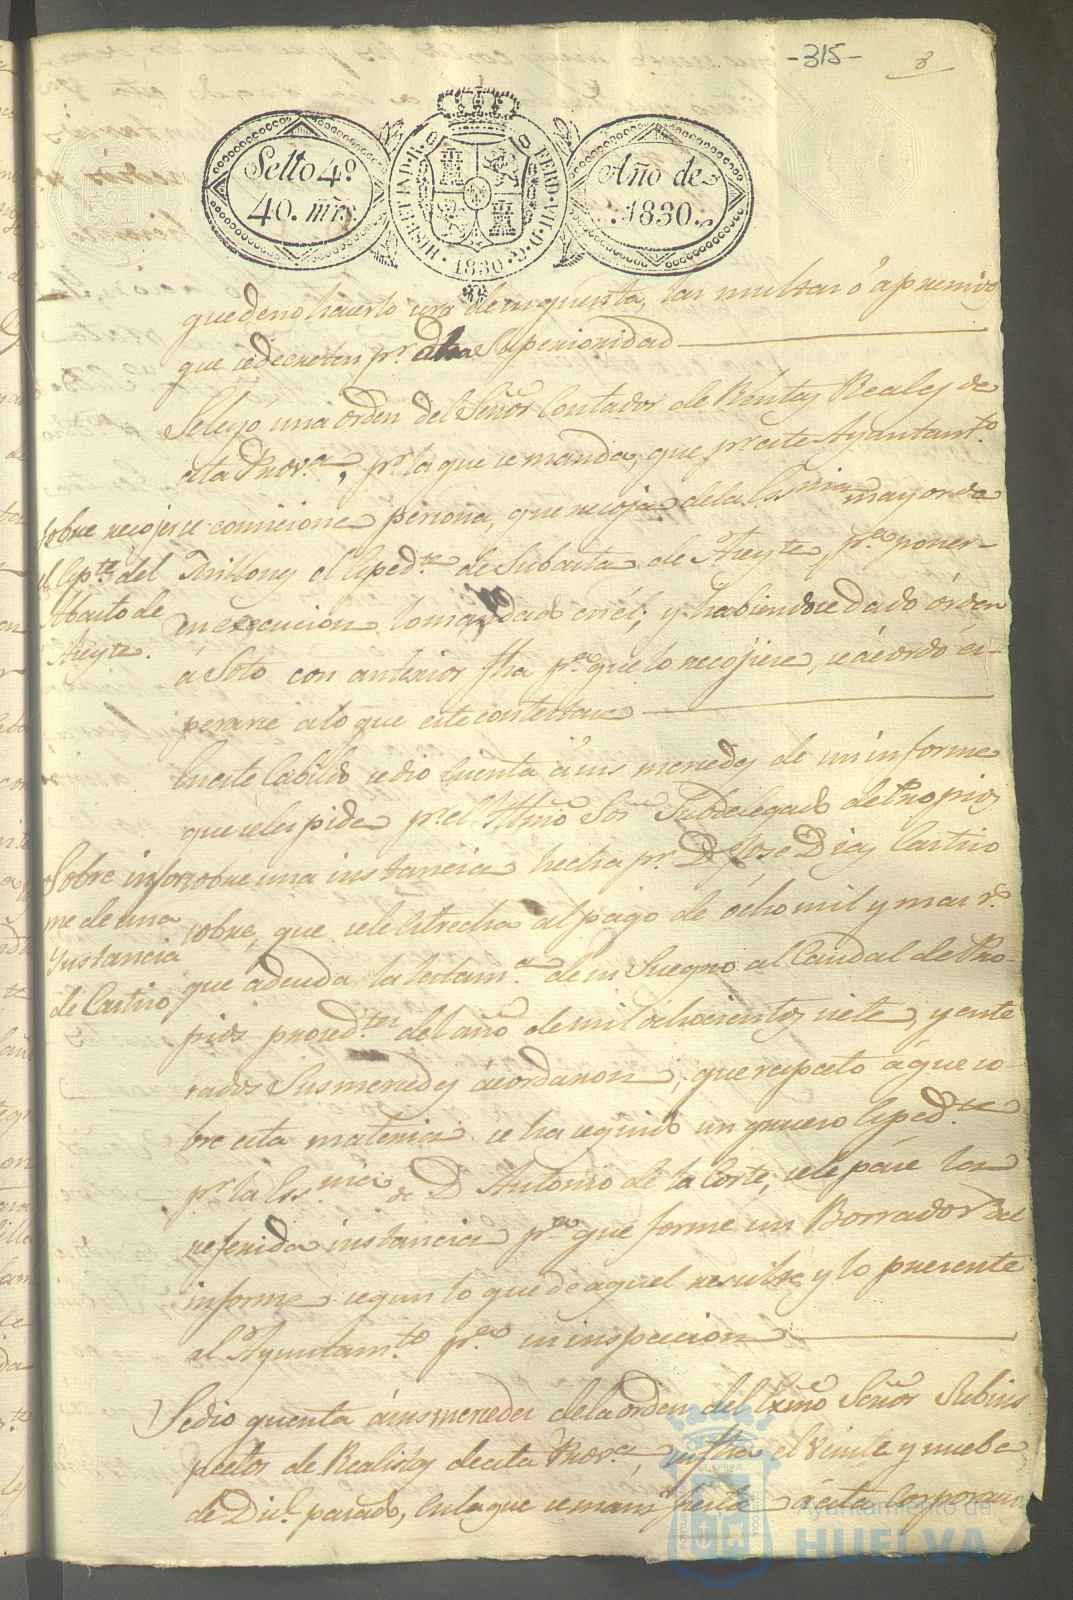 -315-
8
Sello 4º.
40. mrs.
HISP. ET IND. R.
FERD. VII. D. G.
1830
Año de
1830.
que de no hacerlo será de su cuenta, las multas ó apremios
que se decreten pr. dha Superioridad
Se leyó una órden del Señor Contador de Rentas Reales de
esta Prova., pr. la que se manda, que pr. este Ayuntamto.
comicione persona, que recoja de la Essnia mayor de
Millones el Espedte. de Subasta de Aseyte pa. poner
en execucion lo mandado en él; y habiendose dado órden
á Soto con anterior fha pa. que lo recojiese, se acordó es-
perarse a lo que este contestase
Sobre recojerse
el Espte. del
Abasto de
Aseyte.
En este Cabildo se dio cuenta á sus mercedes de un informe
que se les pide pr. el Yltmo Sor. Subdelegado de Propios
sobre una instancia hecha pr. D. Jose Dias Castrio
sobre, que se le estrecha al pago de ocho mil y mas rs.
que adeuda la testama. de su Suegro al Caudal de Pro-
pios procedtes. del año de mil ochocientos siete, y ente
rados Sus mercedes acordaron; que respecto á que so-
bre esta materia se ha seguido un grueso Espedte.
pr. la Essnia de D Antonio de la Corte, se le pase la
referida instancia pa. que forme un Borrador del
informe segun lo que de aquel resulte y lo presente
al Ayuntamto. pa. su inspeccion
Sobre infor
me de una
Ynstancia
de Castrio
Se dio quenta á sus mercedes de la orden del Exmo Señor Subins
pector de Realistas de esta Prova. su fha el veinte y nuebe
de Dice. pasado, en la que se manifiesta á esta Corporacion
Ayuntamiento de
HUELVA